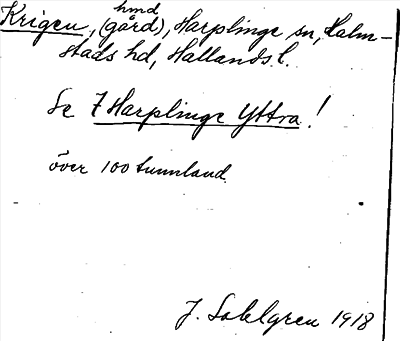 hmd
Krigen, (gård), Harplinge sn, Halm-
stads hd, Hallands l.
Se 7 Harplinge Yttra!
över 100 tunnland.
J. Sahlgren 1918